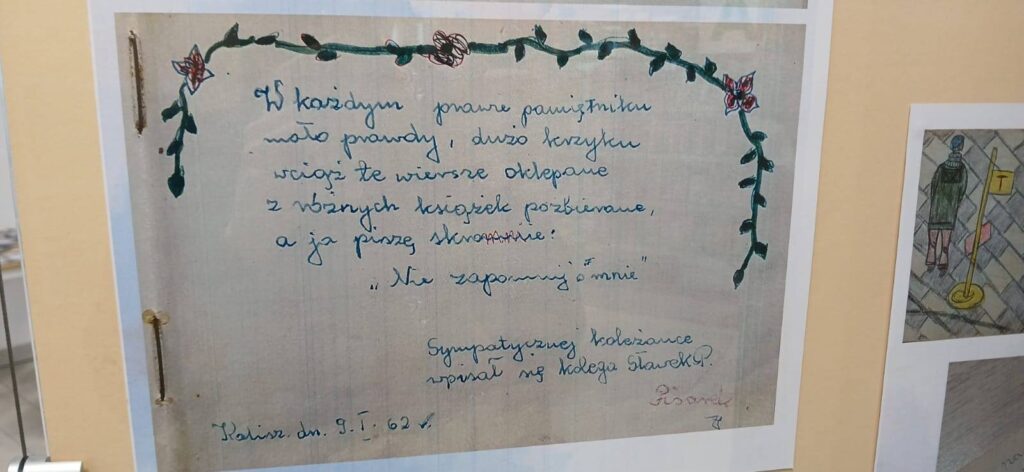 W każdym prawie pamiętniku
mało prawdy, dużo krzyku
wciąż te wiersze oklepane
z różnych książek pozbierane,
a ja piszę skromnie:
„Nie zapomnij o mnie"
Sympatycznej koleżance
wpisał się kolega Sławek P.
Pisarek
Kalisz. dn. 9. I. 62 r.
T